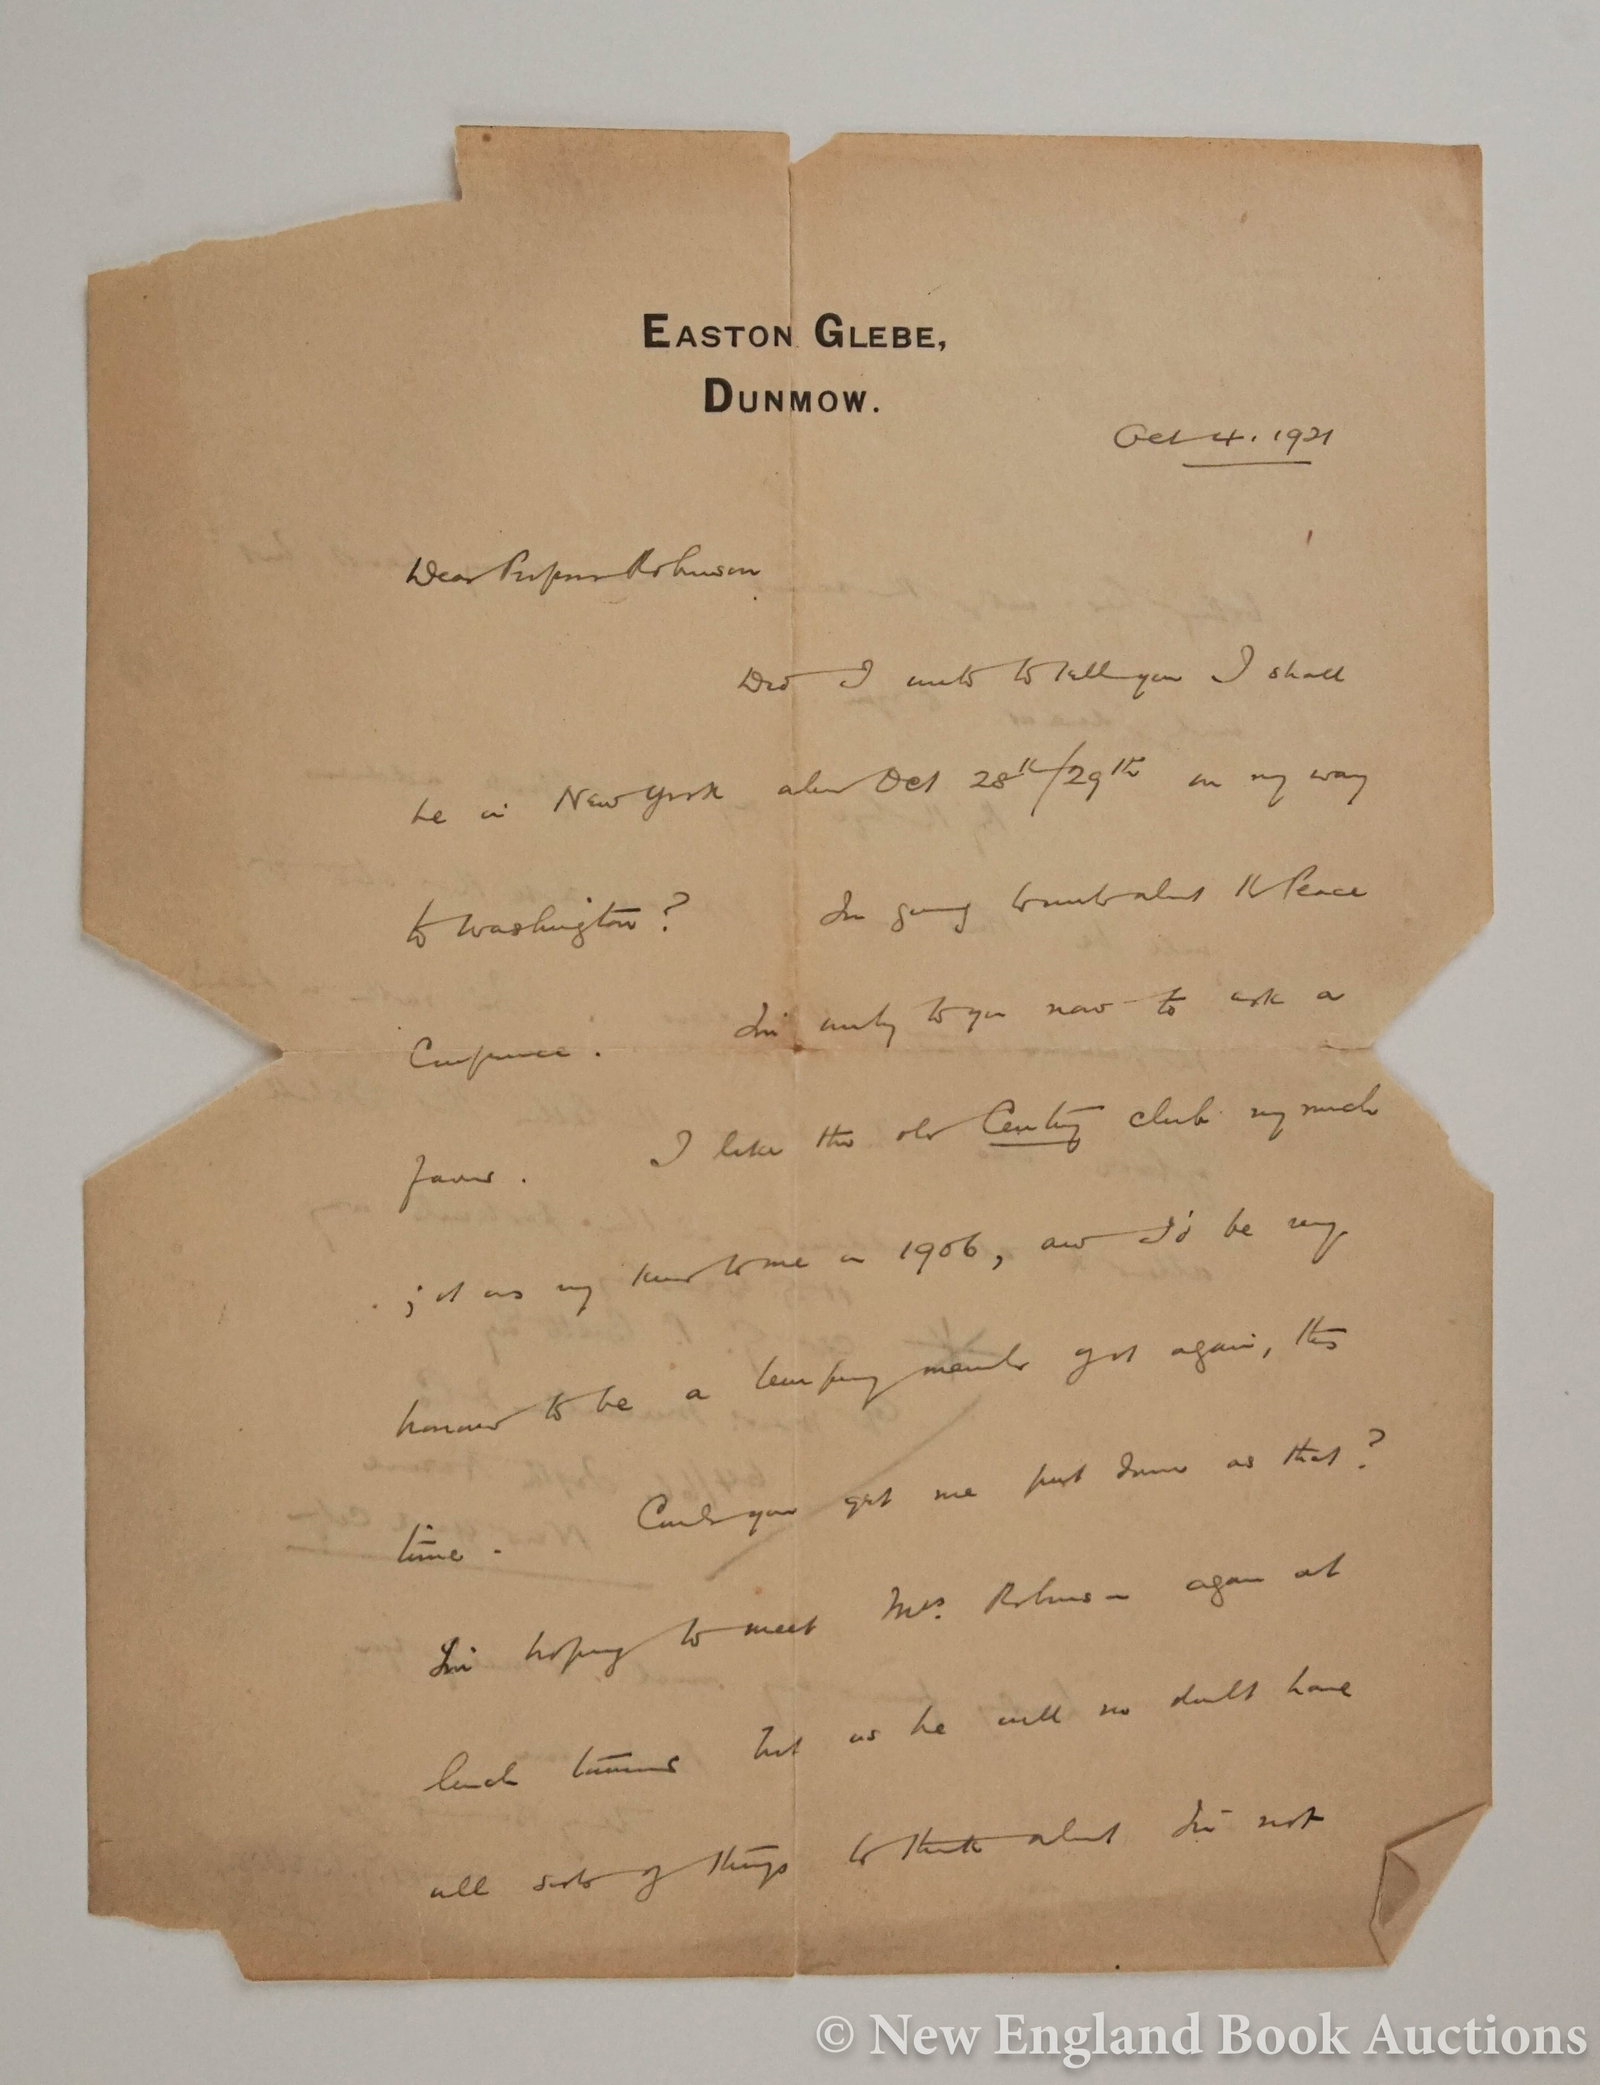 EASTON GLEBE,
DUNMOW.
Oct 4. 1921
Dear Professor Robinson
Did I write to tell you I shall
be in New York about Oct 28th/29th on my way
to Washington? I'm going to write about the Peace
Conference. I'm writing to you now to ask a
favour. I like the old Century club very much
; it was very kind to me in 1906, and I'd be very
honoured to be a temporary member of it again, this
time. Could you get me put down as that?
I'm hoping to meet Mrs. Robinson again at
lunch but as he will no doubt have
all sorts of things to think about I'm not
© New England Book Auctions